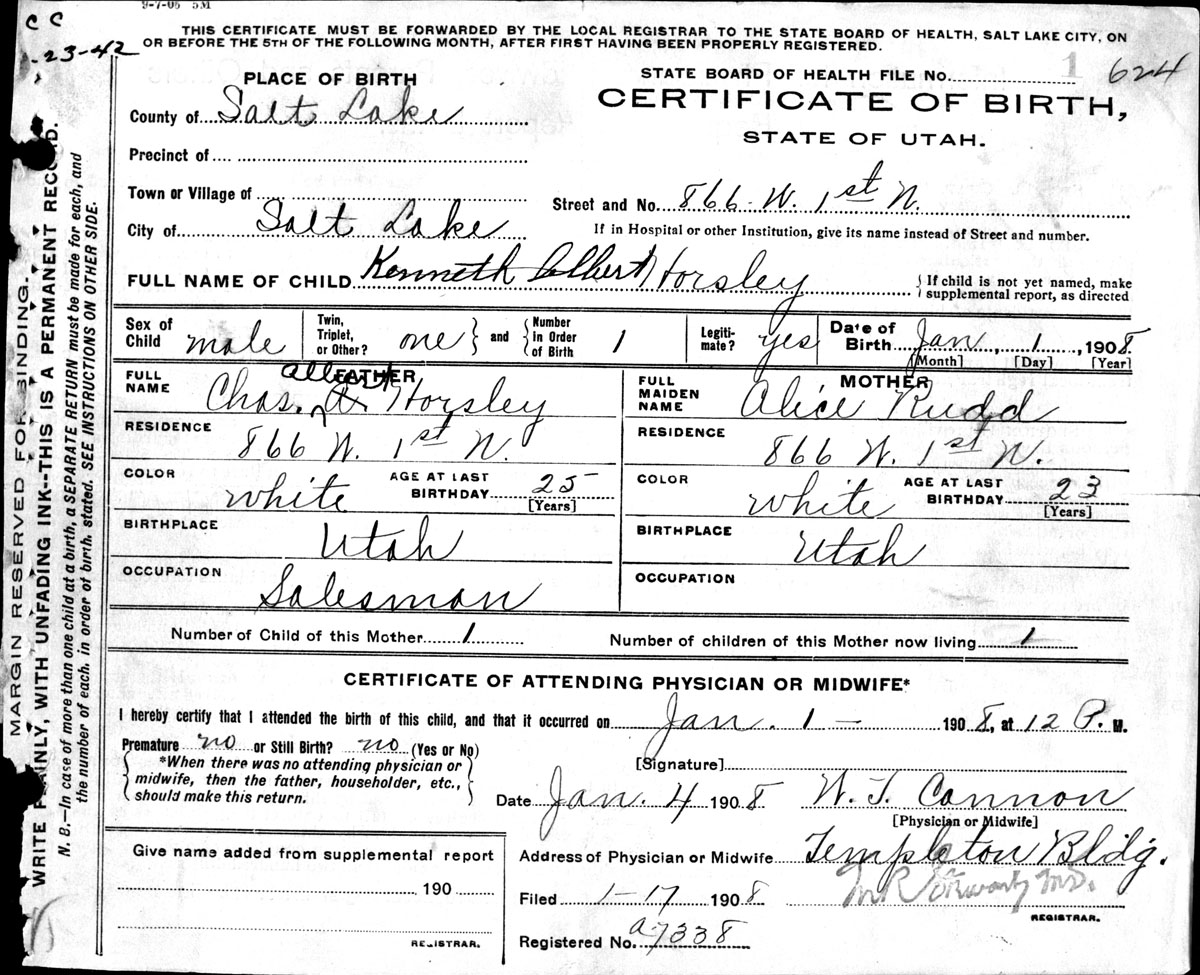 9-7-05 5M
C C
23-42
THIS CERTIFICATE MUST BE FORWARDED BY THE LOCAL REGISTRAR TO THE STATE BOARD OF HEALTH, SALT LAKE CITY, ON
OR BEFORE THE 5TH OF THE FOLLOWING MONTH, AFTER FIRST HAVING BEEN PROPERLY REGISTERED.
PLACE OF BIRTH
County of Salt Lake
Precinct of
Town or Village of
City of Salt Lake
STATE BOARD OF HEALTH FILE No. 1 624
CERTIFICATE OF BIRTH,
STATE OF UTAH.
Street and No. 866 W. 1st N.
If in Hospital or other Institution, give its name instead of Street and number.
FULL NAME OF CHILD Kenneth Albert Horsley
If child is not yet named, make
supplemental report, as directed
Sex of Child male
Twin, Triplet, or Other? one and Number in Order of Birth 1
Legitimate? yes
Date of Birth Jan, 1, 1908.
[Month] [Day] [Year]
FATHER
FULL NAME Chas. A. Albert Horsley
RESIDENCE 866 W. 1st N.
COLOR white AGE AT LAST BIRTHDAY 25
[Years]
BIRTHPLACE Utah
OCCUPATION Salesman
MOTHER
FULL MAIDEN NAME Alice Rudd
RESIDENCE 866 W. 1st N.
COLOR White AGE AT LAST BIRTHDAY 23
[Years]
BIRTHPLACE Utah
OCCUPATION
Number of Child of this Mother 1
Number of children of this Mother now living 1
CERTIFICATE OF ATTENDING PHYSICIAN OR MIDWIFE*
I hereby certify that I attended the birth of this child, and that it occurred on Jan. 1 — 1908, at 12 P. M.
Premature no or Still Birth? no (Yes or No)
*When there was no attending physician or
midwife, then the father, householder, etc.,
should make this return.
[Signature]
Date Jan. 4 1908 W. T. Cannon
[Physician or Midwife]
Address of Physician or Midwife Templeton Bldg.
Give name added from supplemental report
190
REGISTRAR.
Filed 1-17 1908
REGISTRAR.
Registered No. a7338
MARGIN RESERVED FOR BINDING.
WRITE PLAINLY, WITH UNFADING INK--THIS IS A PERMANENT RECORD.
N. B.—In case of more than one child at a birth, a SEPARATE RETURN must be made for each, and
the number of each, in order of birth, stated. SEE INSTRUCTIONS ON OTHER SIDE.